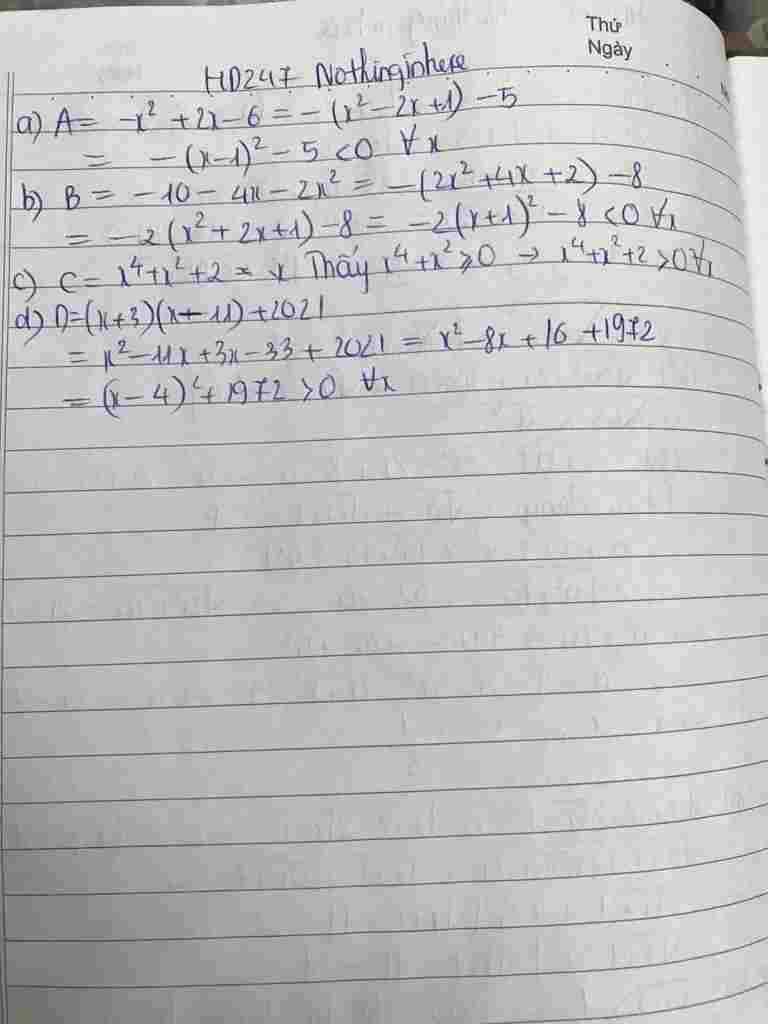 Thứ
Ngày
HD247 Nothinginhere
a) A = -x² + 2x - 6 = -(x² - 2x + 1) - 5
= -(x-1)² - 5 < 0 ∀x
b) B = -10 - 4x - 2x² = -(2x² + 4x + 2) - 8
= -2(x² + 2x + 1) - 8 = -2(x+1)² - 8 < 0 ∀x
c) C = x⁴ + x² + 2 = Thấy x⁴ + x² ≥ 0 → x⁴ + x² + 2 > 0 ∀x
d) D = (x+3)(x-11) + 2021
= x² - 11x + 3x - 33 + 2021 = x² - 8x + 16 + 1972
= (x-4)² + 1972 > 0 ∀x